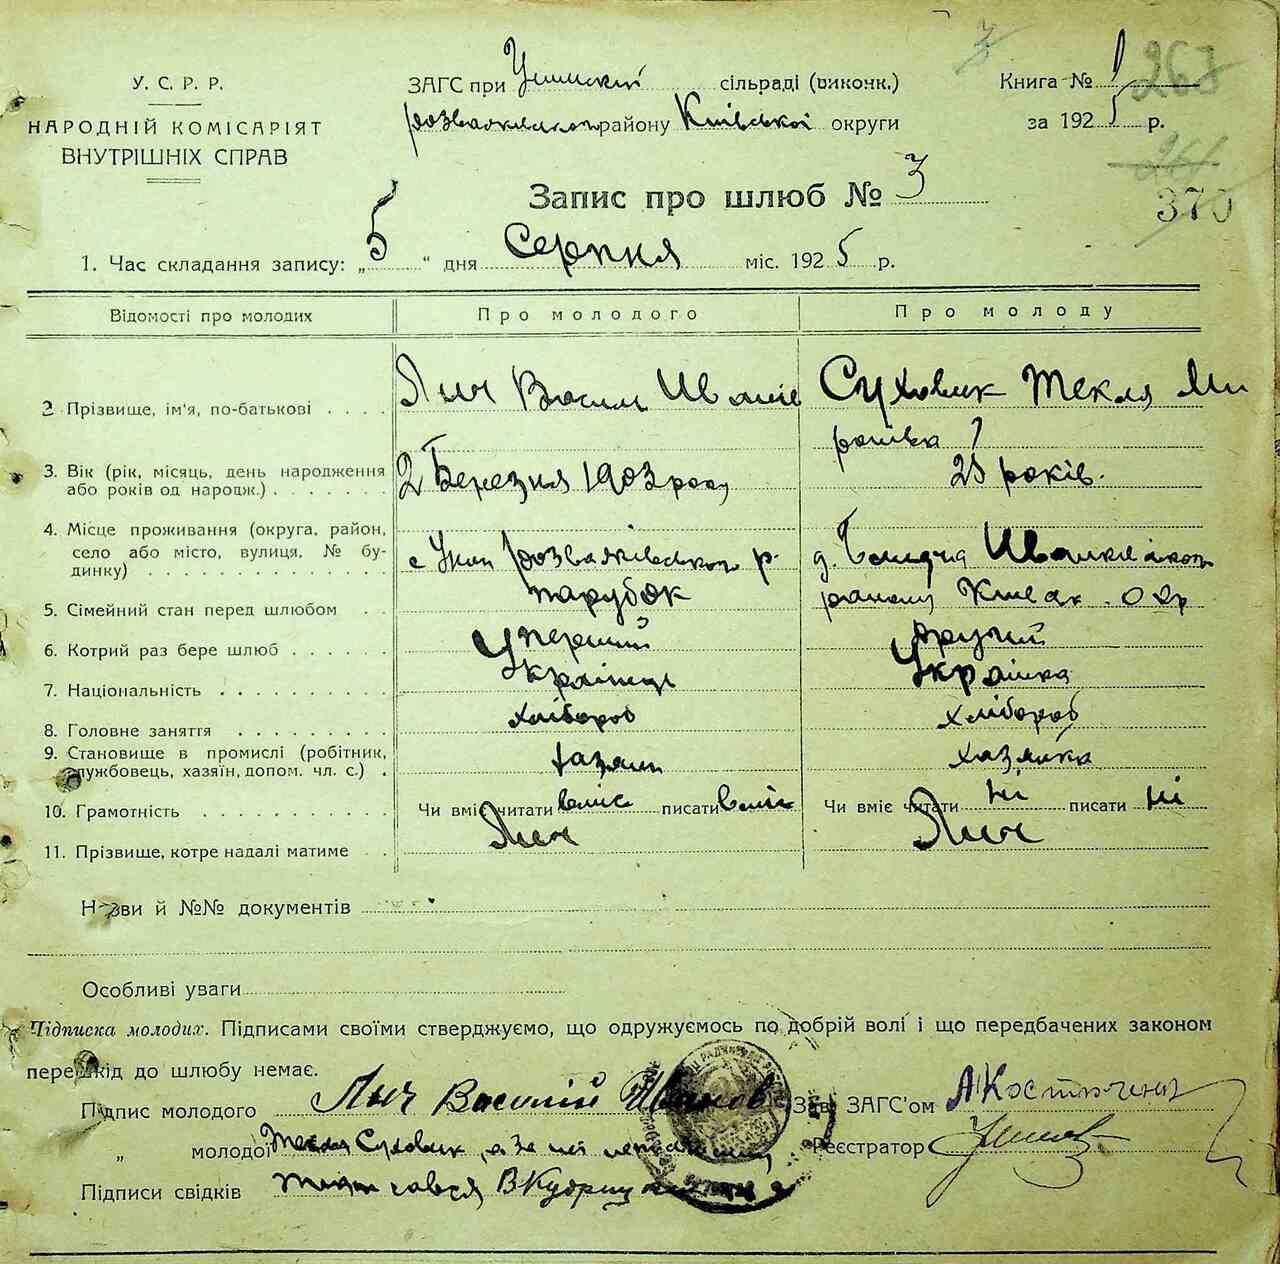 У. С. Р. Р.
НАРОДНІЙ КОМІСАРІЯТ
ВНУТРІШНІХ СПРАВ
ЗАГС при сільраді (виконк.)
району Київської округи
Книга № 1
за 1925 р.
370
Запис про шлюб № 3
1. Час складання запису: „5“ дня Серпня міс. 1925 р.
Відомості про молодих Про молодого Про молоду
2 Прізвище, ім'я, по-батькові Лич Василь Іванів Суховик Текля Ми
ронівна
3. Вік (рік, місяць, день народження
або років од народж.) 2 Березня 1903 року 25 років.
4. Місце проживання (округа, район,
село або місто, вулиця, № бу-
динку) с розважівського р.
району
5. Сімейний стан перед шлюбом парубок
6. Котрий раз бере шлюб перший другий
7. Національність Українець Українка
8. Головне заняття хлібороб хлібороб
9. Становище в промислі (робітник,
службовець, хазяїн, допом. чл. с.) хазяїн хазяйка
10. Грамотність Чи вміє читати вміє писати вміє Чи вміє читати ні писати ні
11. Прізвище, котре надалі матиме Лич Лич
Назви й №№ документів
Особливі уваги
Підписка молодих. Підписами своїми стверджуємо, що одружуємось по добрій волі і що передбачених законом
перешкід до шлюбу немає.
Підпис молодого Лыч Василій Иванов Зав. ЗАГС'ом
„ молодої Текля Суховик, а за неї Реєстратор
Підписи свідків